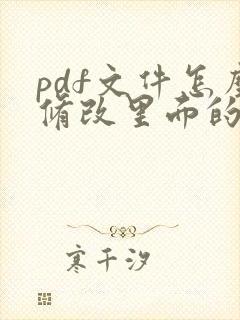 pdf文件怎
脩改里面的
寒千汐